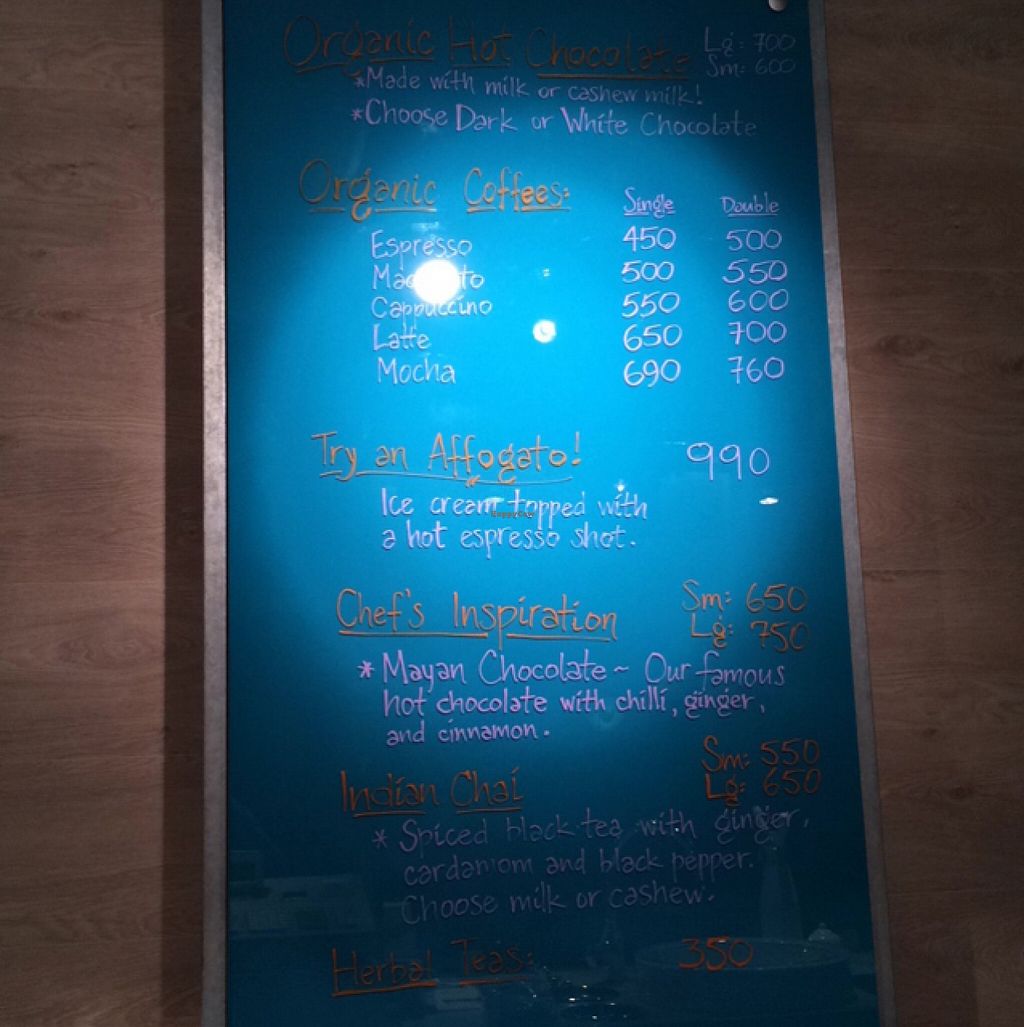 Organic Hot Chocolate Lg: 700
Sm: 600
*Made with milk or cashew milk!
*Choose Dark or White Chocolate
Organic Coffees:
Single Double
Espresso 450 500
500 550
Cappuccino 550 600
Latte 650 700
Mocha 690 760
Try an Affogato! 990
Ice cream topped with
a hot espresso shot.
Chef's Inspiration Sm: 650
Lg: 750
* Mayan Chocolate ~ Our famous
hot chocolate with chilli, ginger,
and cinnamon.
Indian Chai Sm: 550
Lg: 650
* Spiced black tea with ginger,
cardamom and black pepper.
Choose milk or cashew.
Herbal Teas: 350